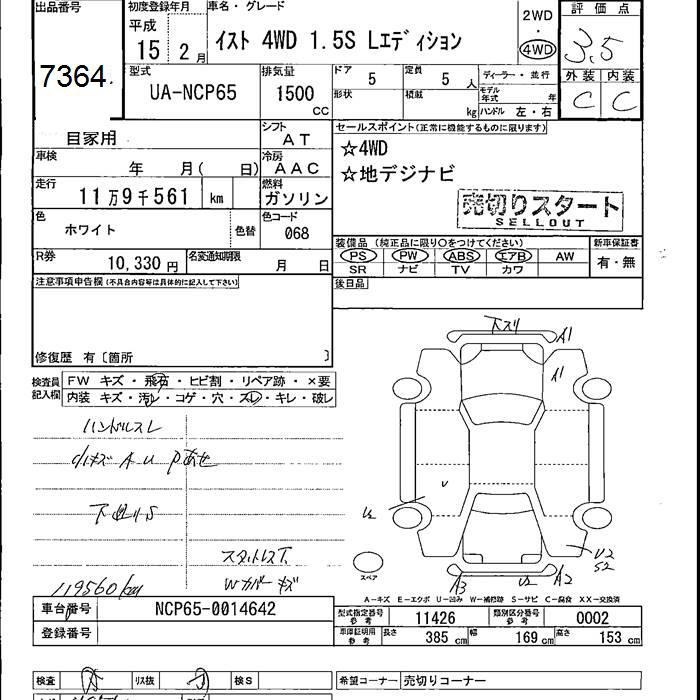 出品番号
7364
初度登録年月
平成
15 2月
車名・グレード
イスト 4WD 1.5S Lエディション
2WD
4WD
評価点
3.5
外装 内装
C C
型式
UA-NCP65
排気量
1500
CC
ドア
5
定員
5 人
形状
積載
kg
ディーラー・並行
モデル年式 年
ハンドル 左・右
自家用
シフト
AT
車検
年 月( 日)
冷房
AAC
走行
11万9千561 km
燃料
ガソリン
色
ホワイト
色替
色コード
068
R券
10,330円
名変通知期限
月 日
セールスポイント(正常に機能するものに限ります)
☆4WD
☆地デジナビ
売切りスタート
SELLOUT
装備品(純正品に限り○をつけてください)
新車保証書
PS PW ABS エアB AW
有・無
SR ナビ TV カワ
後日品
注意事項申告欄(不具合内容等は具体的に記入して下さい)
修復歴 有〔箇所 〕
検査員記入欄
FW キズ・飛石・ヒビ割・リペア跡・×要
内装 キズ・汚レ・コゲ・穴・ズレ・キレ・破レ
ハンドルスレ
小キズ A U Pあせ
下廻りS
スタットレス下
Wカバーキズ
119560km
下スリ
A1
A1
U2
U2
S2
スペア
A3
U2
A2
A-キズ E-エクボ U-凹み W-補修跡 S-サビ C-腐食 XX-交換済
車台番号
NCP65-0014642
登録番号
型式指定番号
参考
11426
類別区分番号
参考
0002
車庫証明用
参考
長さ 385 cm 幅 169 cm 高さ 153 cm
検査
リス抜
検S
希望コーナー
売切りコーナー